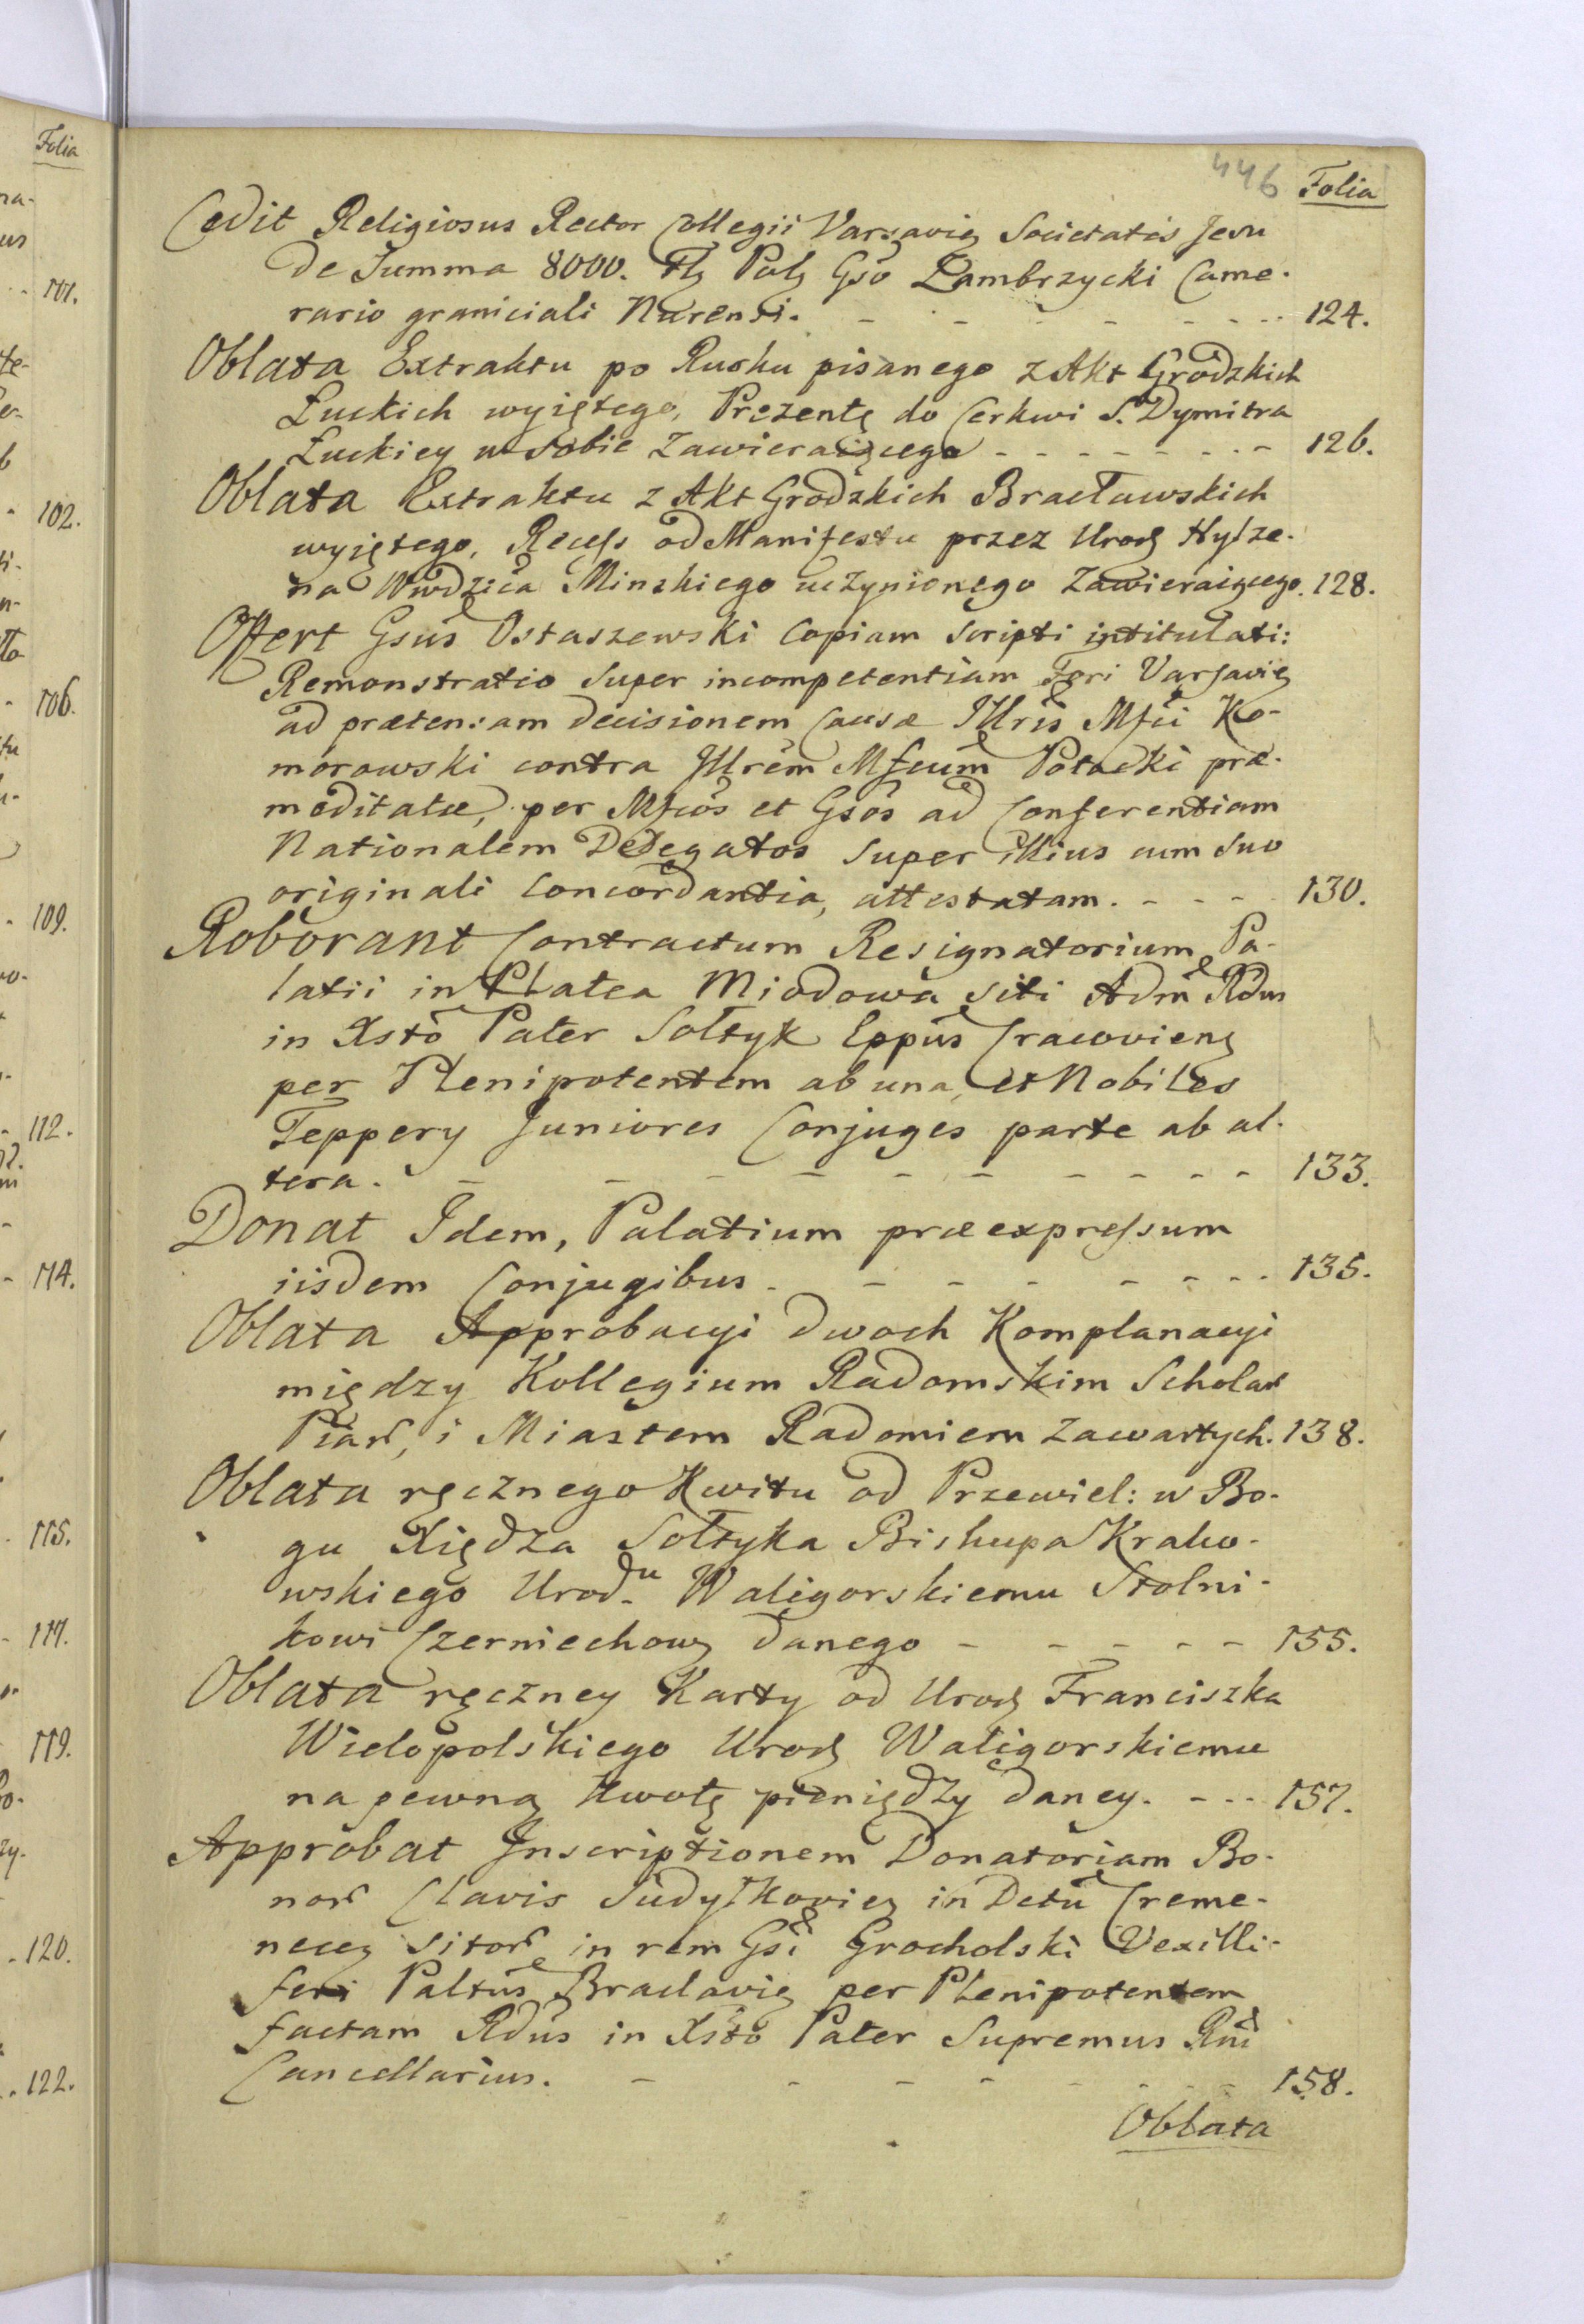 446 Folia
Cedit Religiosus Rector Collegii Varsavię Societatis Jesu
de Summa 8000. Flȝ Polȝ Gsō Zambrzycki Came-
rario graniciali Nurensi. 124.
Oblata Extraktu po Rusku pisanego z Akt Grodzkich
Łuckich wyiętego, Prezentę do Cerkwi S. Dymitra
Łuckiey w sobie zawieraiącego 126.
Oblata Extraktu z Akt Grodzkich Bracławskich
wyiętego, Recess od Manifestu przez Urodȝ Hylze-
na Wwdzica Minskiego uczynionego zawieraiącego. 128.
Offert Gsūs Ostaszewski Copiam Scripti intitulati:
Remonstratio super incompetentiam Fori Varsavię
ad prætensam decisionem Causæ Illrīs Mfci Ko-
morowski contra Illrēm Mfcūm Potocki præ-
meditatæ, per Mfcōs et Gsōs ad Conferentiam
Nationalem Delegatos super illius cum suo
originali Concordantia, attestatam. 130.
Roborant Contractum Resignatorium Pa-
latii in Platea Miodowa siti Adm̄ Rdus
in Xstō Pater Sołtyk Eppūs Cracovienȝ
per Plenipotentem ab una, et Nobiles
Teppery Juniores Conjuges parte ab al-
tera. 133.
Donat Idem, Palatium præexpressum
iisdem Conjugibus 135.
Oblata Approbacyi dwoch Komplanacyi
między Kollegium Radomskim Scholar
Piar, i Miastem Radomiem zawartych. 138.
Oblata ręcznego Kwitu od Przewiel: w Bo-
gu Xiędza Sołtyka Biskupa Krako-
wskiego Urodu Waligorskiemu Stolni-
kowi Czerniechowȝ danego 155.
Oblata ręczney Karty od Urodȝ Franciszka
Wielopolskiego Urodȝ Waligorskiemu
na pewną kwotę pieniędzy daney. 157.
Approbat Inscriptionem Donatoriam Bo-
nor Clavis Sudylkovieȝ in Dctū Creme-
neceȝ sitor in rem Gsī Grocholski Vexilli-
feri Paltūs Braclavię per Plenipotentem
factam Rdūs in Xstō Pater Supremus Rnī
Cancellarius. 158.
Oblata